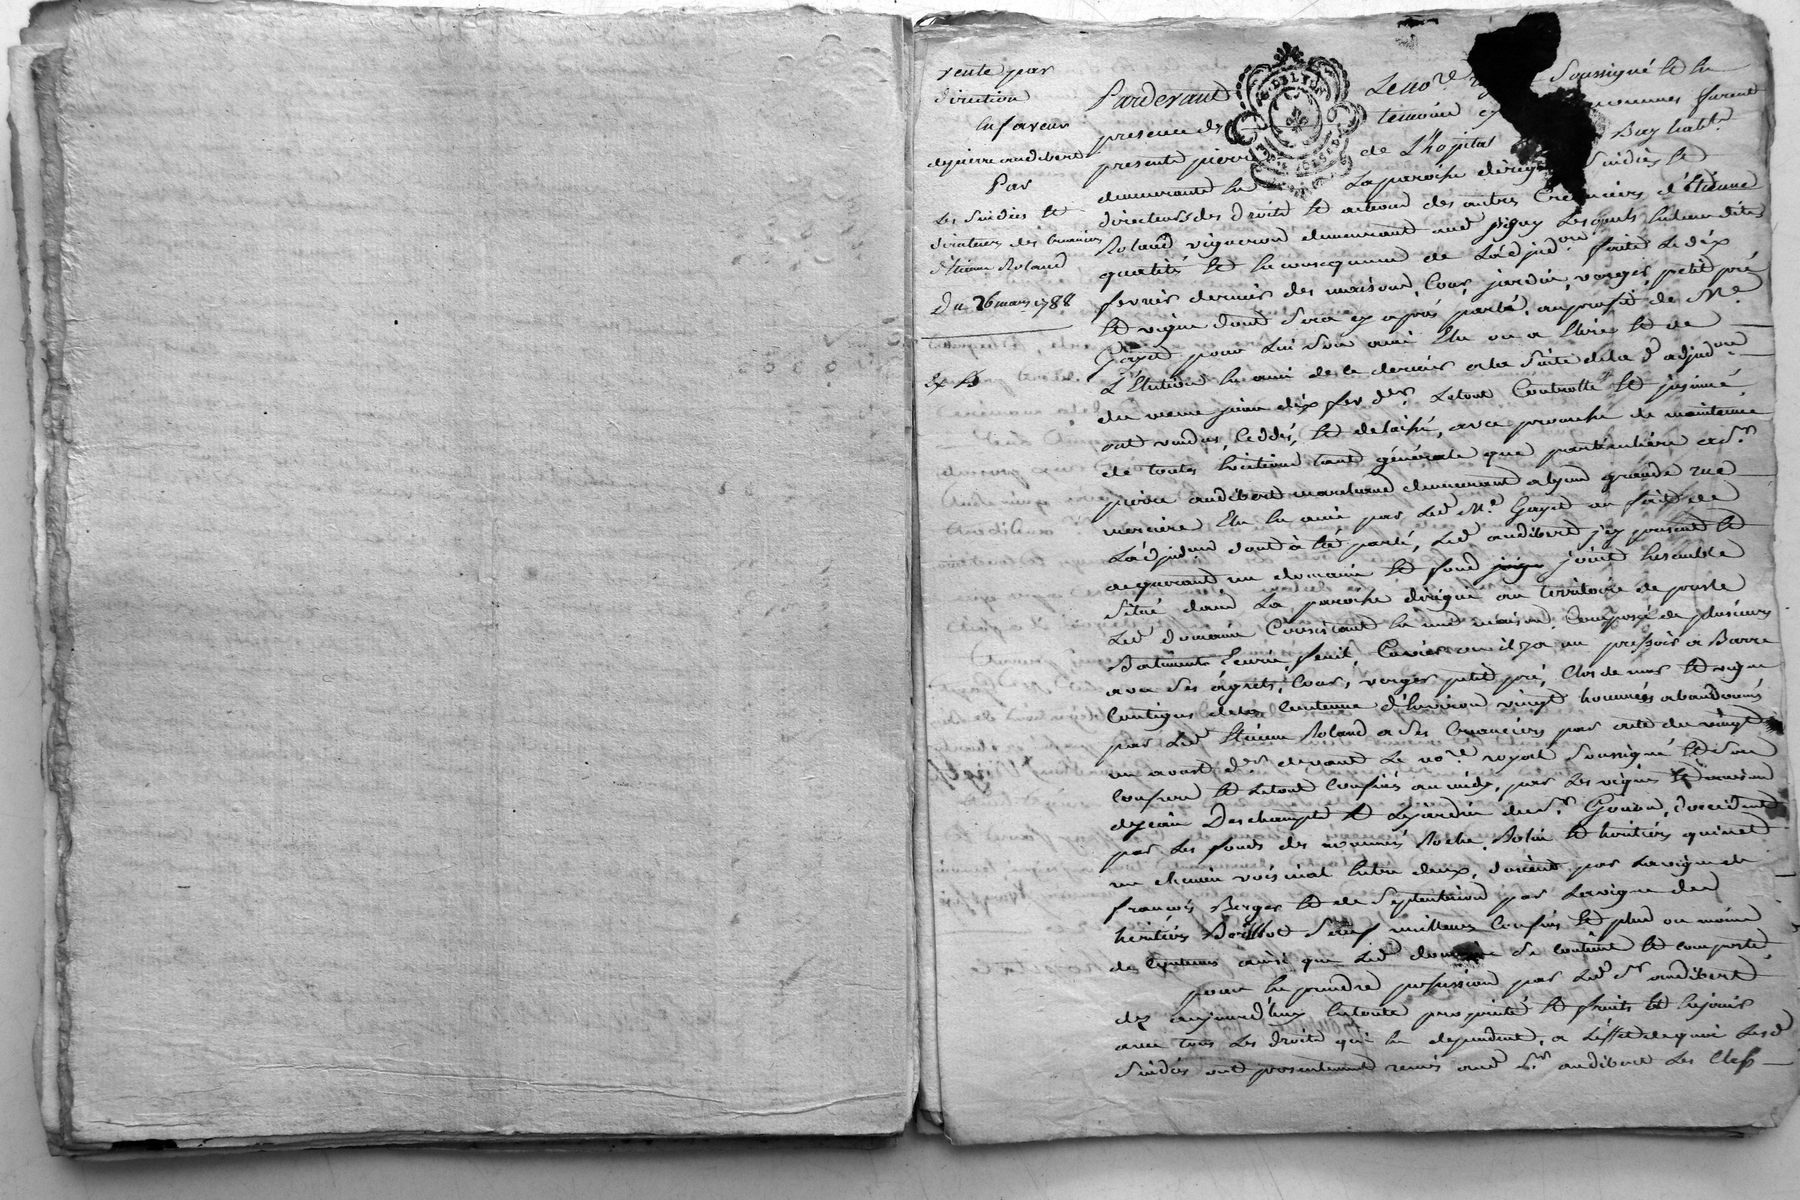 vente par
direction
en faveur
de pierre audibert
Par
Les sindics et
directeurs des creanciers
d'Etienne Roland
Du 26 mars 1788
G. DE LYON
Pardevant Le no.re soussigné et en
presence des temoins
present pierre de L'hopital Buy habt.
demeurants en La paroisse d'irigny sindics et
directeurs des droits et actions des autres Creanciers d'Etienne
Roland vigneron demeurant aud irigny Lesquels esdittes
qualités et en consequence de L'adjud.on faitte Le dix
fevrier dernier des maisons, Cour, jardin, verger, petit pré
et vigne dont sera cy après parlé, au profit de M.e
Gayet pour Lui son ami Elu ou a Elire et de
L'Election en ami de ce dernier a la suite de la d.e adjud.on
du meme jour dix fev. der. Letout Controllé et insinué
ont vendus, Ceddés, et delaissé, avec promesse de maintenue
de touttes evictions tant générale que particuliére a s.r
pierre audibert marchand demeurant a Lyon grande rue
merciere Elu en ami par Led M.e Gayet au fait de
L'adjud.on dont à été parlé, Led audibert icy present et
acquerant un domaine et fond joint ensemble
situé dans La paroisse d'irigny au territoire de
Led domaine Consistant en une maison Composée de plusieurs
Batiments Ecurie, fenil, Cuvier ou il y a un pressoir a Barre
avec ses agrets, Cour, verger petit pré, Clos de murs et vigne
Contigus de la Contenue d'Environ vingt hommées abandonnés
par Led Etienne Roland a ses Creanciers par acte du vingt
un aoust d.er devant Le no.re royal soussigné et son
Confrere et Letout Confinés au midy, par Les vignes et maison
de jean Deschamps et Le jardin du s.r Gonon, d'occident
par Les fonds des nommés Roche, Robin et heritiers quinet
un chemin voisinal Entre deux, d'orient par La vigne de
francois Berger et de septentrion par La vigne des
heritiers Boillot sauf meilleurs Confins et plus ou moins
de Contenus ainsi que Led domaine se contient et comporte
pour en prendre possession par Led s.r audibert
dez aujourd'huy En toute proprieté et fruits et en jouir
avec tous Les droits qui en dependent, a L'effet de quoi Lesd
sindics ont presentement remis aud s.r audibert Les Clefs